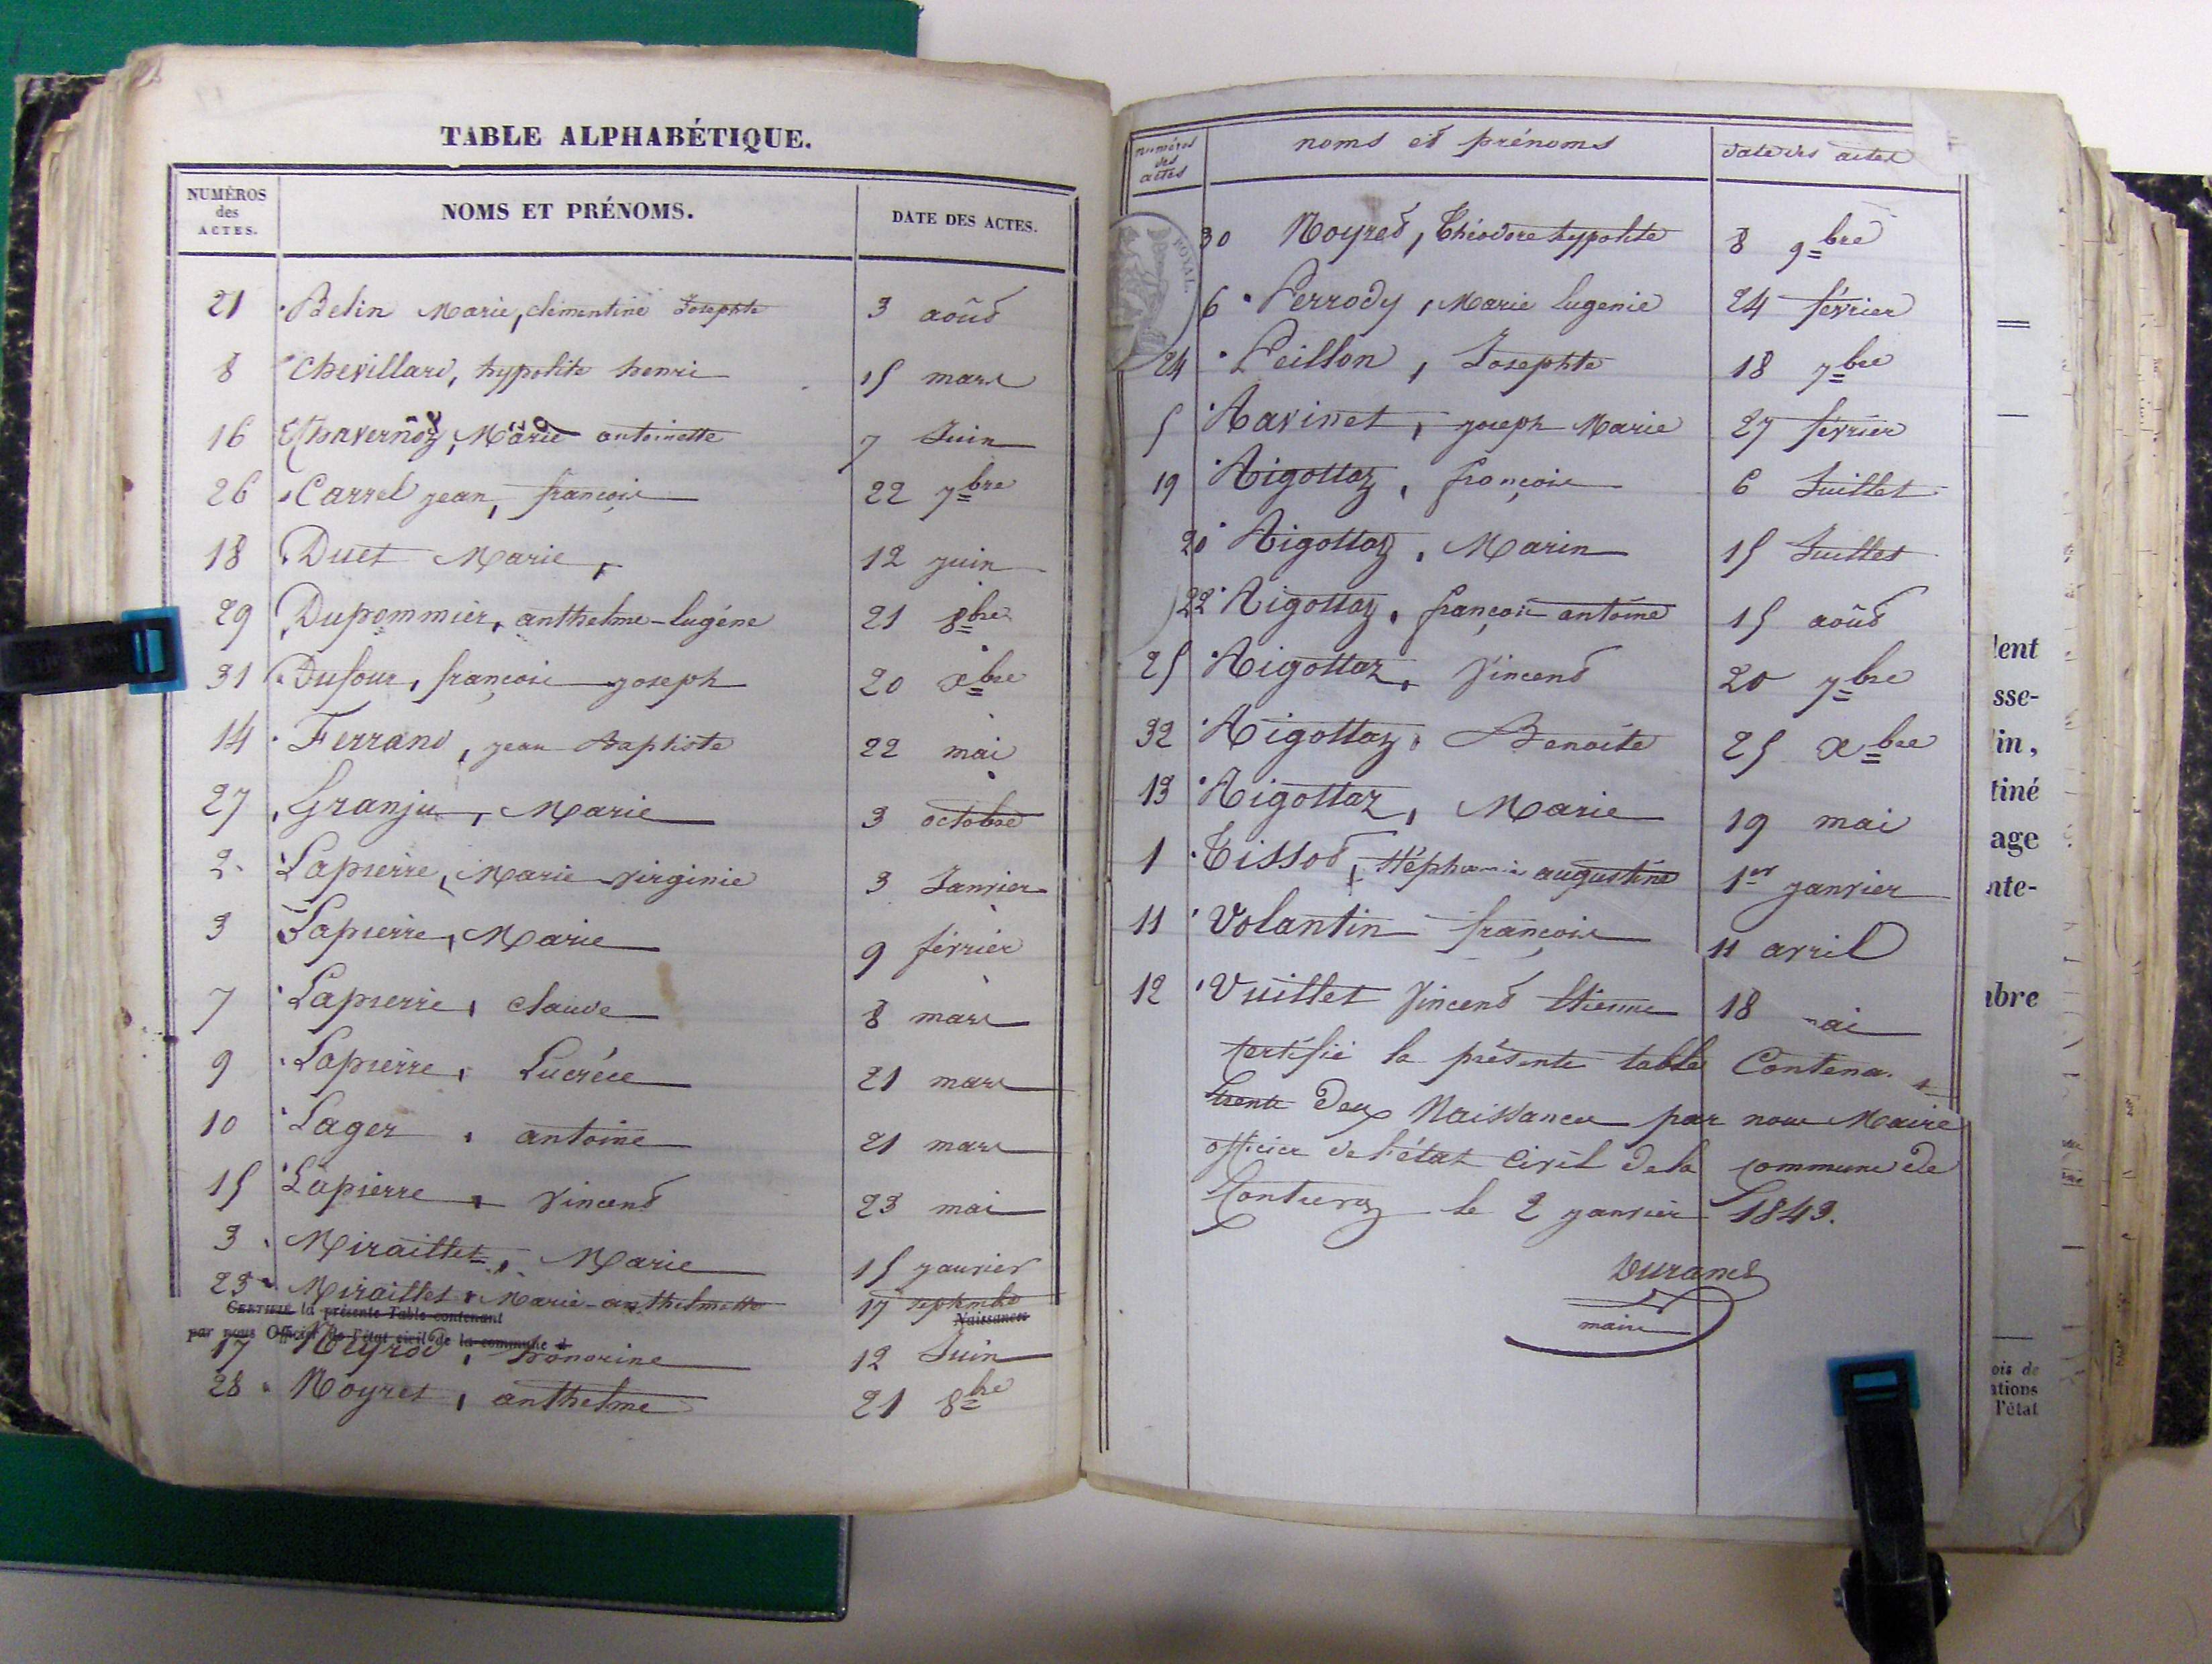 TABLE ALPHABÉTIQUE.
NUMÉROS des ACTES. NOMS ET PRÉNOMS. DATE DES ACTES.
21 Belin Marie, clémentine Josephte 3 août
8 Chevillard, hypolite henri 15 mars
16 Chavernoz, Marie antoinette 7 Juin
26 Carrel jean, françois 22 7bre
18 Duet Marie, 12 juin
29 Dupommier, anthelme-Eugéne 21 8bre
31 Dufour, françois joseph 20 xbre
14 Ferrand, jean Baptiste 22 mai
27 Granju, Marie 3 octobre
2 Lapierre, Marie Virginie 3 Janvier
3 Lapierre, Marie 9 février
7 Lapierre, claude 8 mars
9 Lapierre, Lucréce 21 mars
10 Lager, antoine 21 mars
15 Lapierre, Vincent 23 mai
3 Miraillet, Marie 15 janvier
23 Miraillet, Marie-anthelmette 17 septembre
CERTIFIÉ la présente Table contenant Naissances
par nous Officier de l'état civil de la commune d
17 honorine 12 Juin
28 Noyret, anthelme 21 8bre
numéros des actes noms et prénoms date des actes
ROYAL.
30 Noyret, Théodore hypolite 8 9bre
6 Perrody, Marie Eugenie 24 février
24 Peillon, Josephte 18 7bre
5 Ravinet, joseph Marie 27 février
19 Rigottaz, françois 6 Juillet
20 Rigottaz, Marin 15 Juillet
22 Rigottaz, françois antoine 15 août
25 Rigottaz, Vincent 20 7bre
32 Rigottaz, Benoite 25 xbre
13 Rigottaz, Marie 19 mai
1 Tissot, Stéphanie augustine 1er janvier
11 Volantin françois 11 avril
12 Vuillet Vincent Etienne 18 mai
Certifié la présente table Contena t
trente deux Naissances par nous Maire
officier de l'état civil de la commune de
le 2 janvier 1843.
Durand
maire
lent
sse-
in,
tiné
age
nte-
bre
ois de
ations
l'état